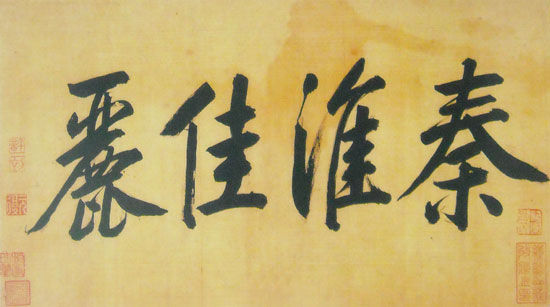 秦淮佳麗